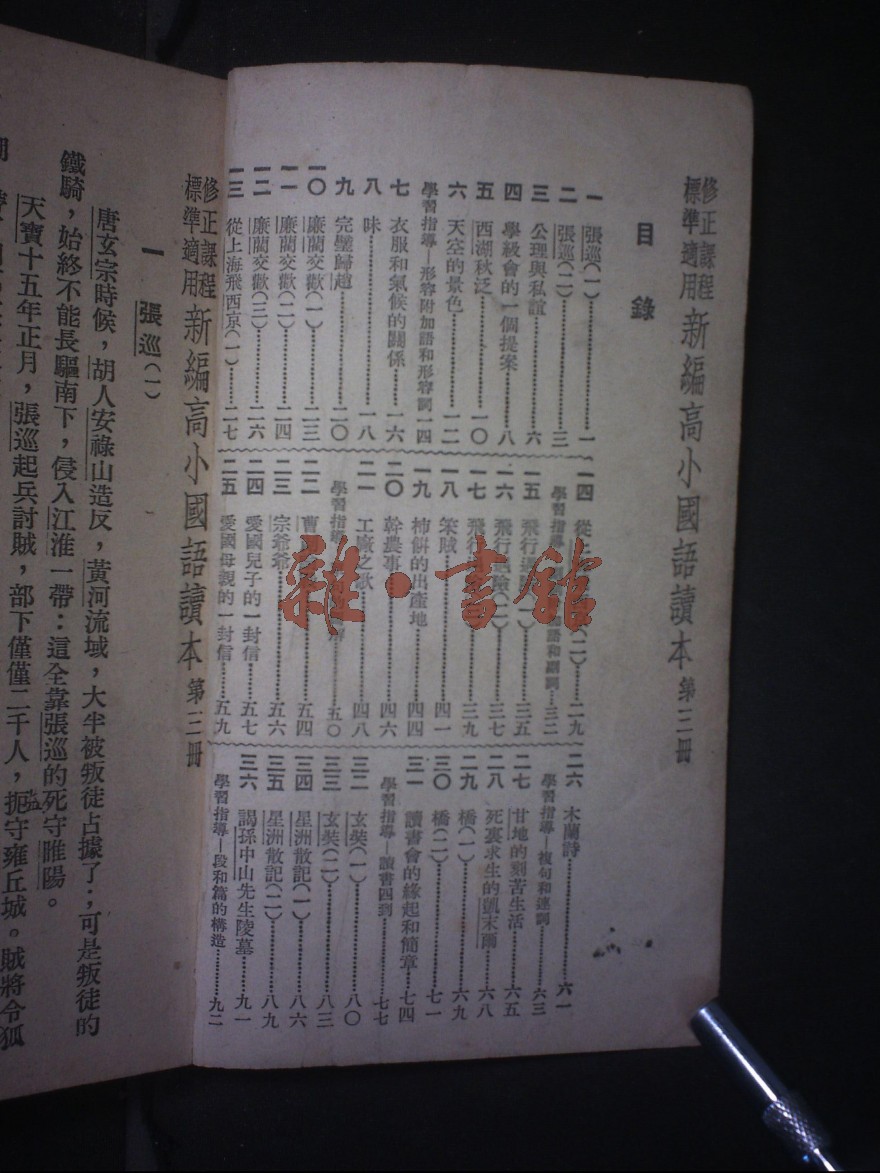 修正課程
標準適用
新編高小國語讀本 第三冊
目錄
一 張巡(一)……一
二 張巡(二)……三
三 公理與私誼……六
四 學級會的一個提案……八
五 西湖秋泛……一〇
六 天空的景色……一二
學習指導—形容附加語和形容詞一四
七 衣服和氣候的關係……一六
八 味……一八
九 完璧歸趙……二〇
一〇 廉藺交歡(一)……二三
一一 廉藺交歡(二)……二四
一二 廉藺交歡(三)……二六
一三 從上海飛西京(一)……二七
一四 從 (二)……二九
學習指導 語和副詞…三二
一五 飛行 (一)……三五
一六 飛行 險(二)……三七
一七 飛行……三九
一八 笨賊……四一
一九 柿餅的出產地……四四
二〇 幹農事……四六
二一 工廠之歌……四八
學習指導……五〇
二二 曹……五四
二三 宗爺爺……五六
二四 愛國兒子的一封信……五七
二五 愛國母親的一封信……五九
二六 木蘭詩……六一
學習指導—複句和連詞……六三
二七 甘地的刻苦生活……六五
二八 死裏求生的凱末爾……六八
二九 橋(一)……六九
三〇 橋(二)……七一
三一 讀書會的緣起和簡章……七四
學習指導—讀書四到……七七
三二 玄奘(一)……八〇
三三 玄奘(二)……八三
三四 星洲散記(一)……八六
三五 星洲散記(二)……八九
三六 謁孫中山先生陵墓……九一
學習指導—段和篇的構造……九二
修正課程
標準適用
新編高小國語讀本 第三冊
一 張巡(一)
唐玄宗時候,胡人安祿山造反,黃河流域,大半被叛徒占據了;可是叛徒的
鐵騎,始終不能長驅南下,侵入江淮一帶:這全靠張巡的死守睢陽。
天寶十五年正月,張巡起兵討賊,部下僅僅二千人,扼守雍丘城。賊將令狐
雜·書館